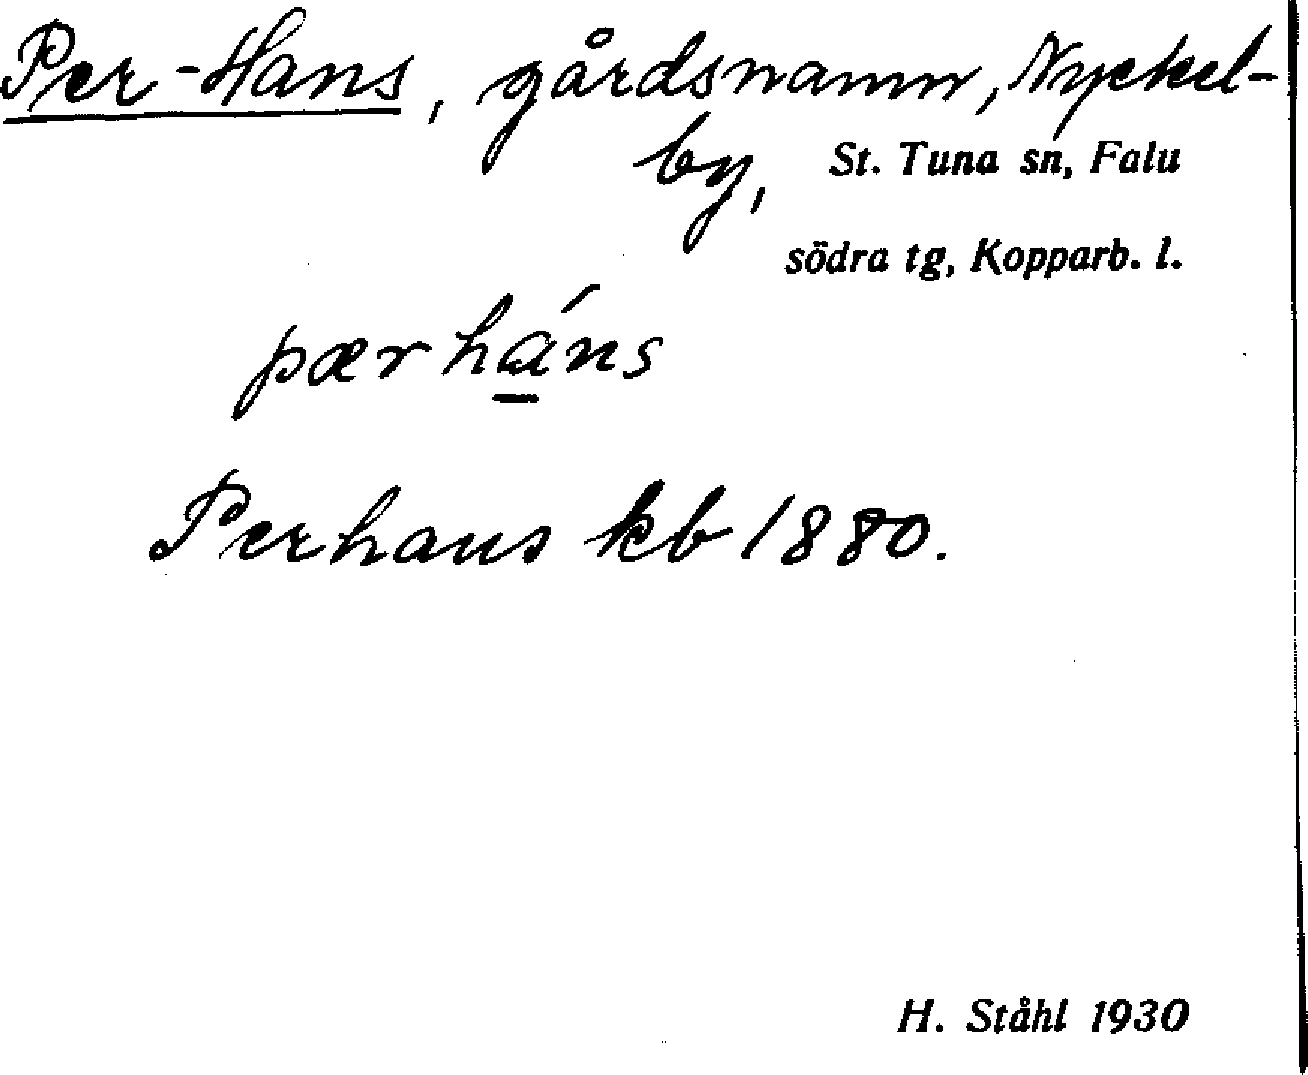 Per-Hans, gårdsnamn, Nyckel-
by, St. Tuna sn, Falu
södra tg, Kopparb. l.
pær háns
Perhans kb 1880.
H. Ståhl 1930